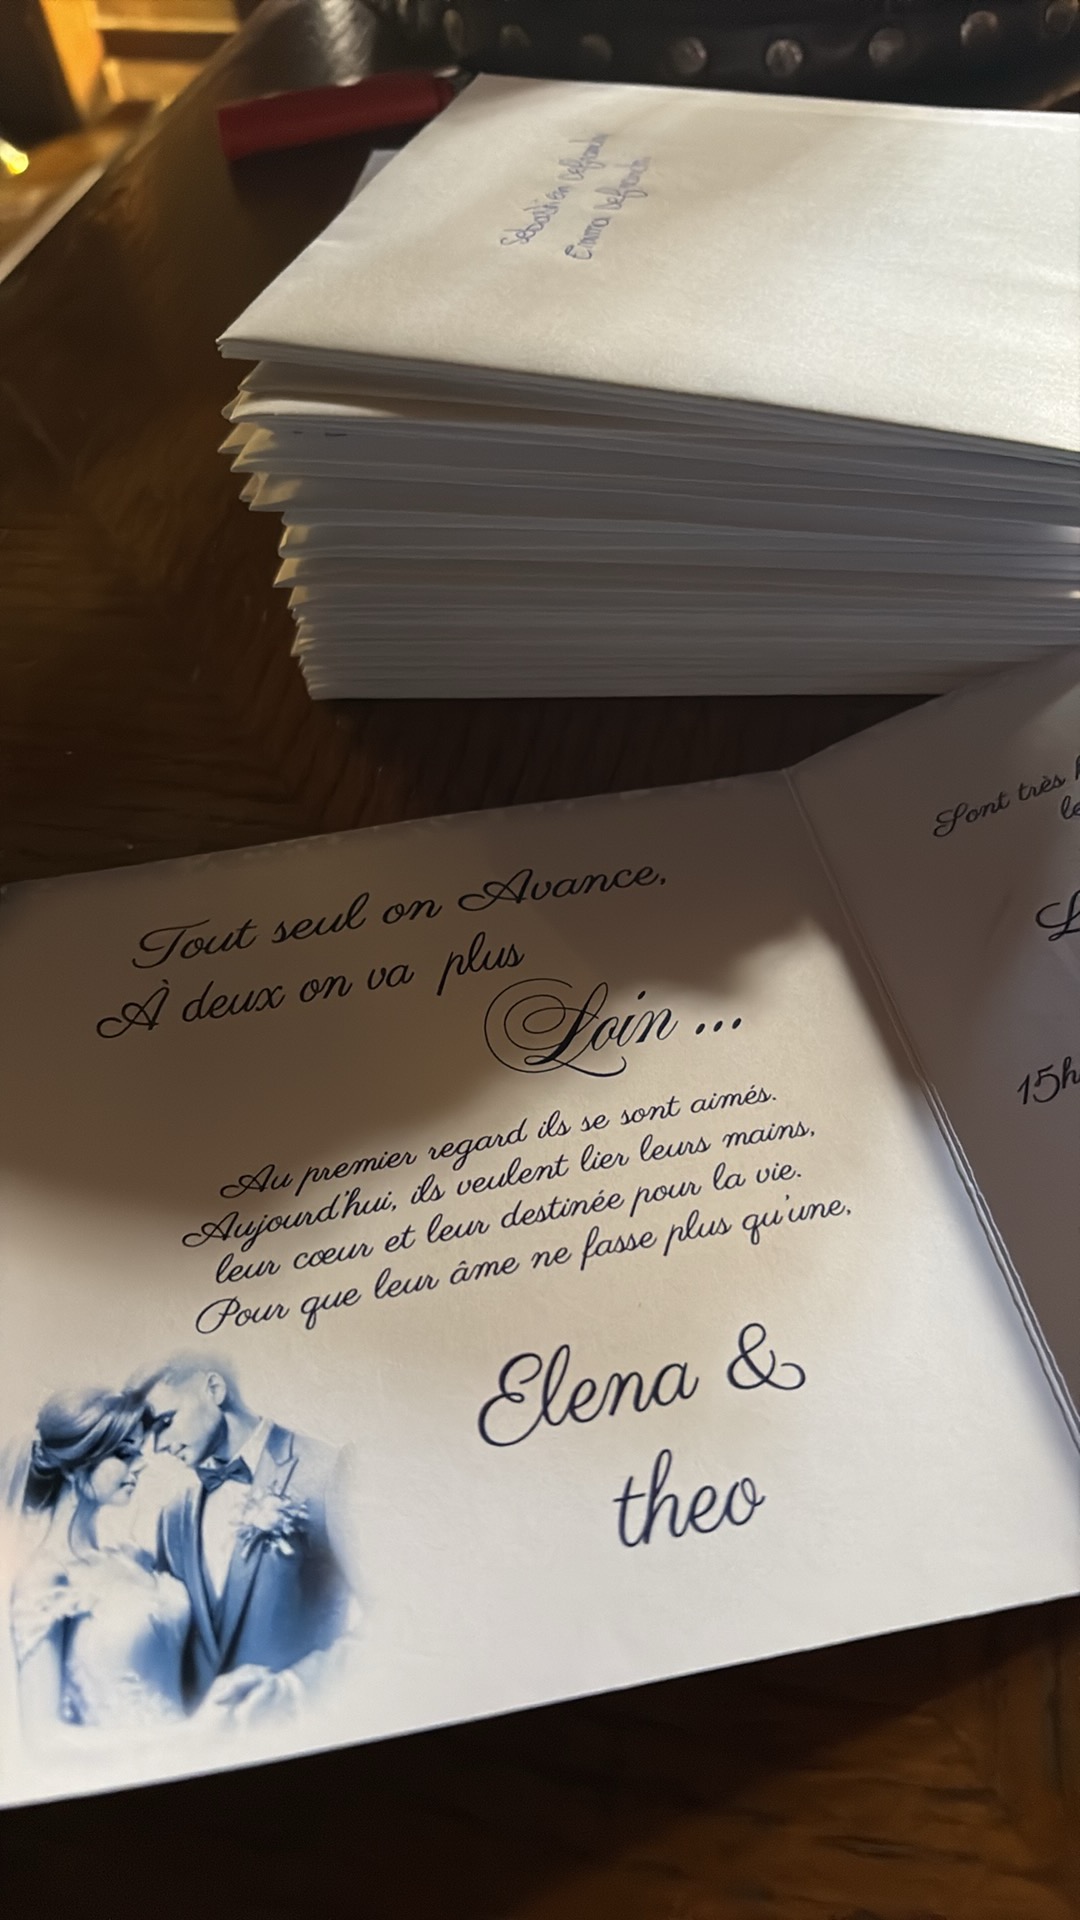 Sebastien
Tout seul on Avance,
À deux on va plus
Loin ...
Au premier regard ils se sont aimés.
Aujourd'hui, ils veulent lier leurs mains,
leur cœur et leur destinée pour la vie.
Pour que leur âme ne fasse plus qu'une,
Elena &
theo
Sont très
le
L
15h